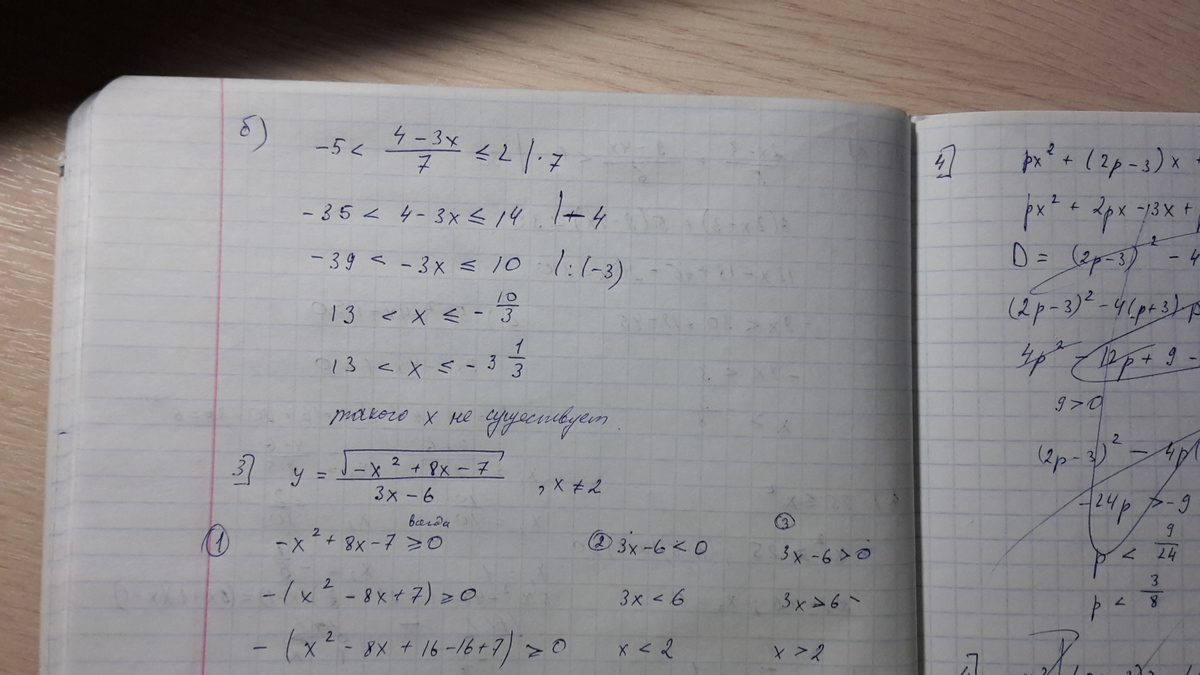 б)
-5 < (4-3x)/7 ≤ 2 | · 7
-35 < 4-3x ≤ 14 | -4
-39 < -3x ≤ 10 | : (-3)
13 < x ≤ - 10/3
13 < x ≤ -3 1/3
такого x не существует.
3] y = √(-x² + 8x - 7) / (3x - 6) , x ≠ 2
всегда
① -x² + 8x - 7 ≥ 0 ② 3x-6 < 0 ③ 3x-6 > 0
-(x² - 8x + 7) ≥ 0 3x < 6 3x > 6
-(x² - 8x + 16 - 16 + 7) ≥ 0 x < 2 x > 2
4] px² + (2p-3)x +
px² + 2px - 3x +
D = (2p-3)² - 4
(2p-3)² - 4(p+3) p
4p² - 12p + 9 -
9 > 0
(2p-3)² - 4p(
-24p > -9
p < 9/24
p < 3/8